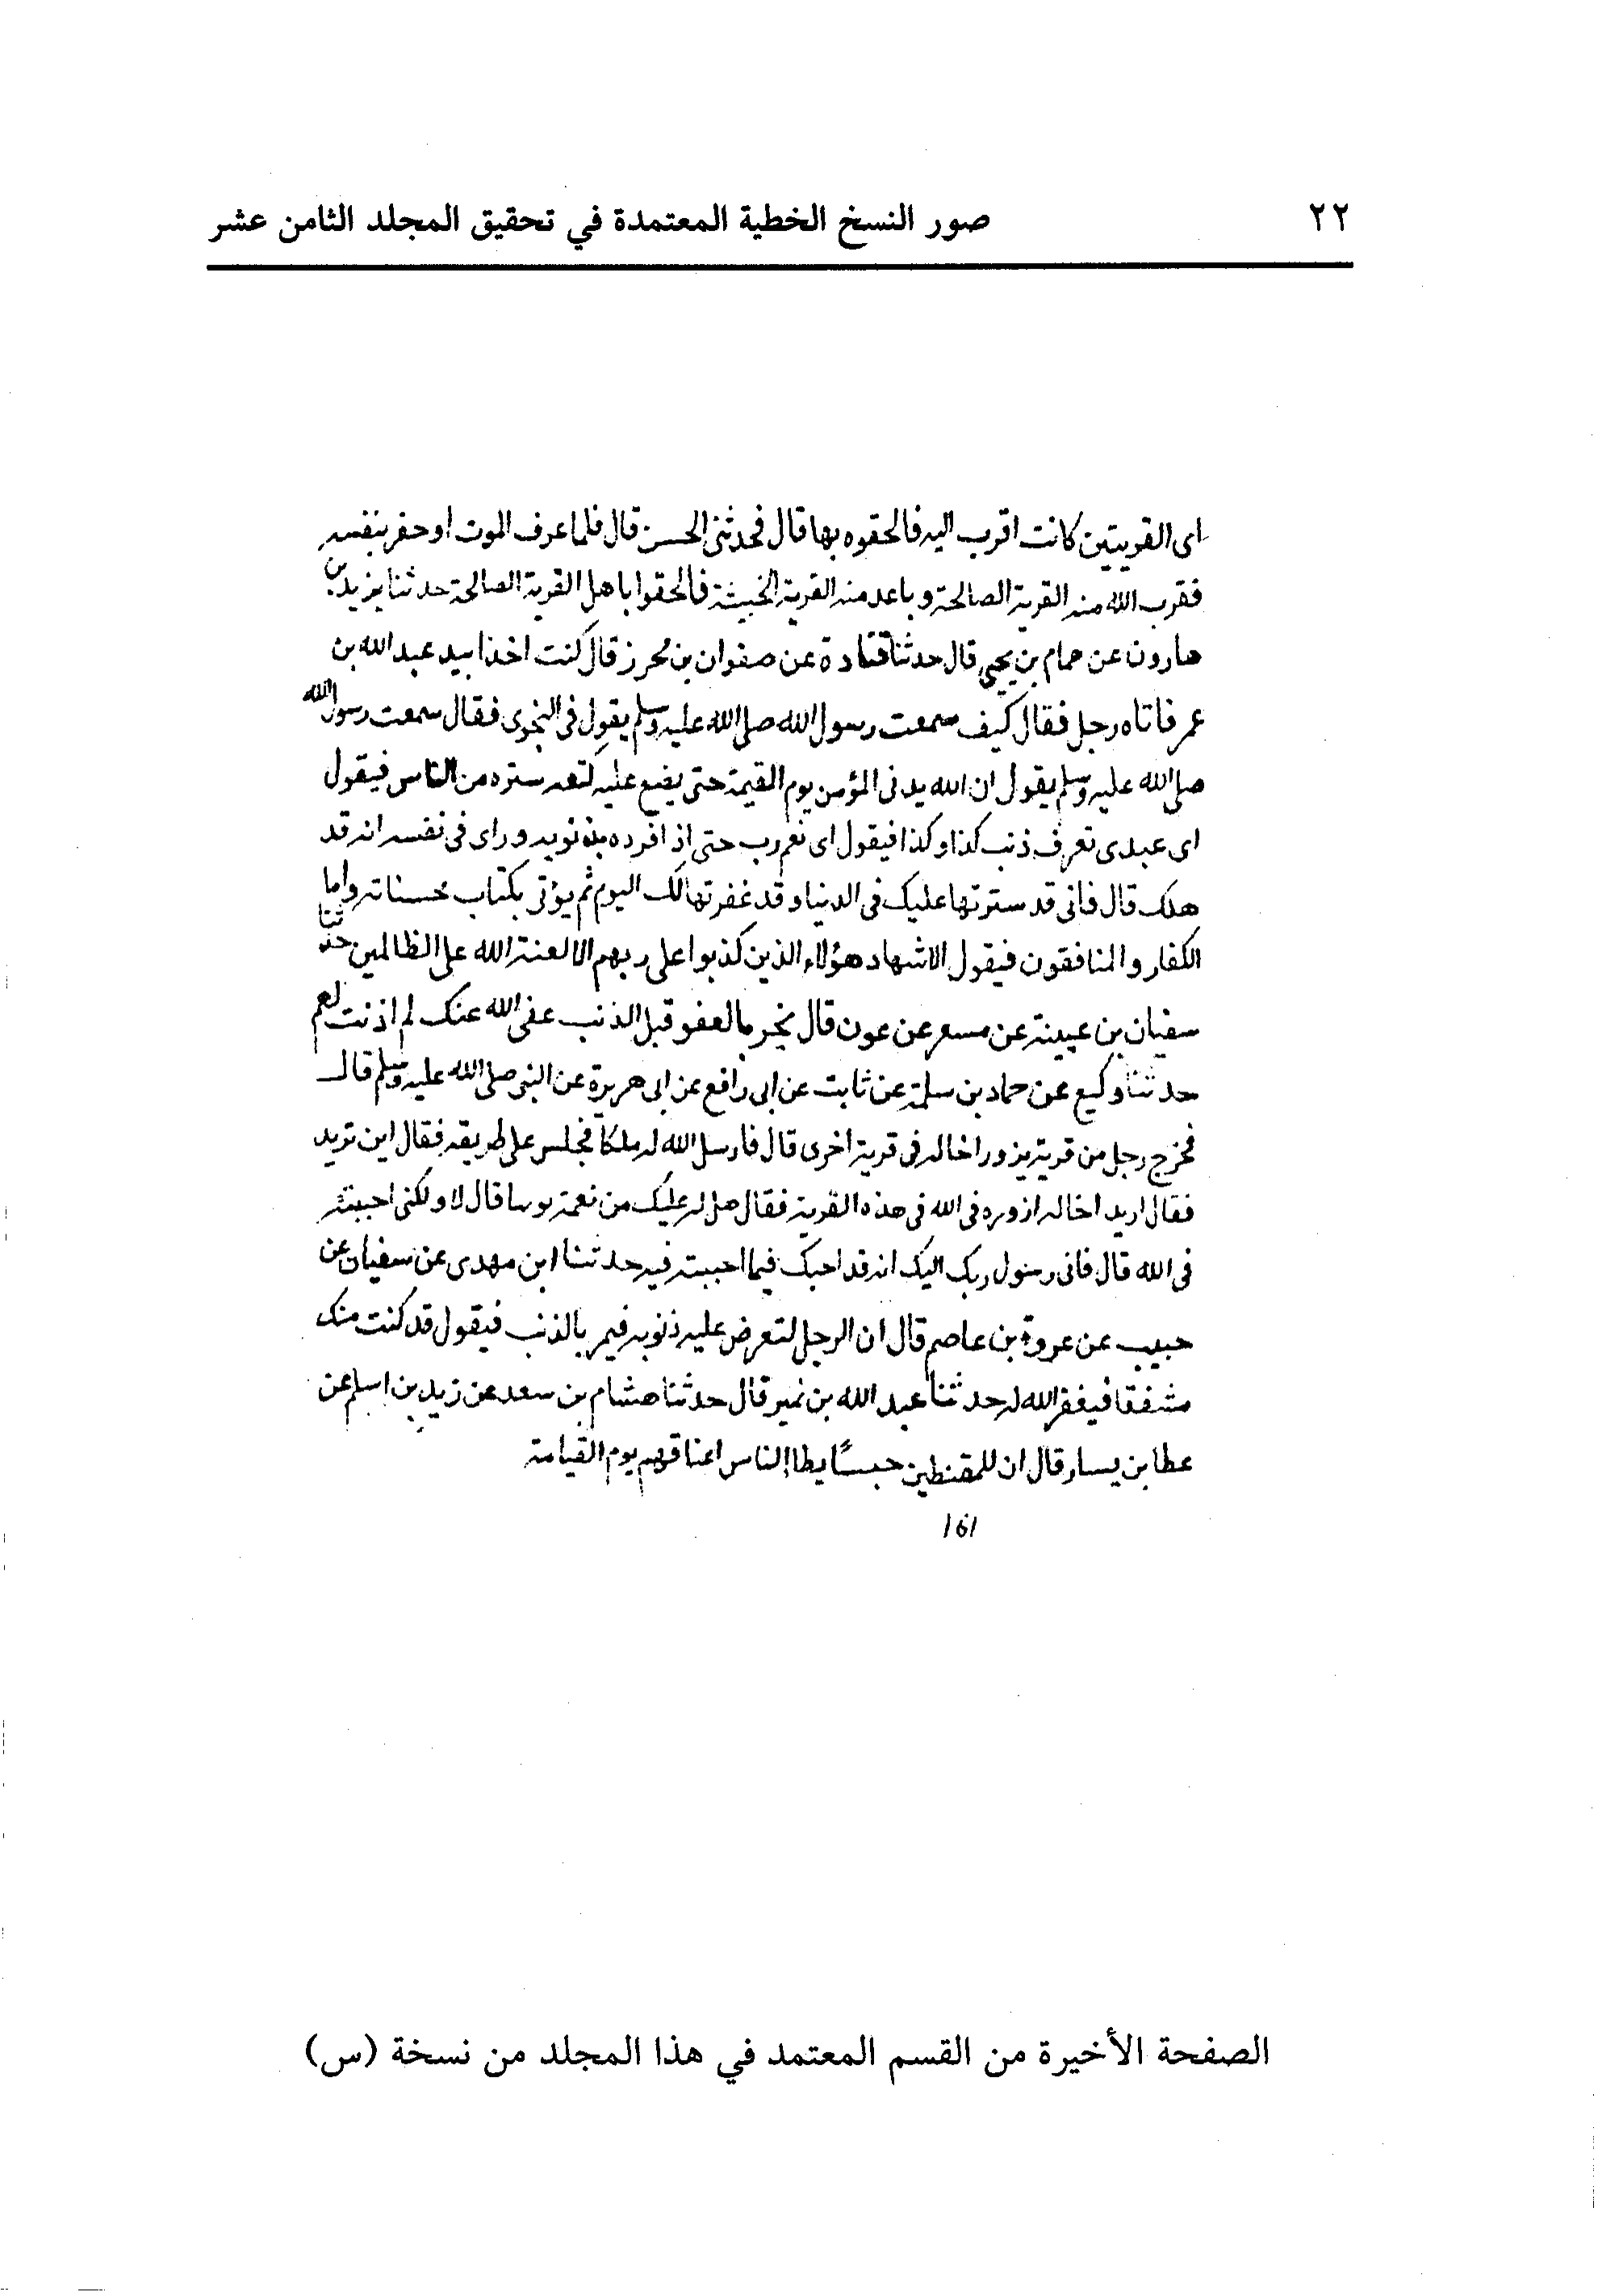 ٢٢ صور النسخ الخطية المعتمدة في تحقيق المجلد الثامن عشر
اى القريتين كانت اقرب اليه فالحقوه بها قال فحدثنى الحسن قال فلما عرف الموت احفز بنفسه
فقرب الله منه القرية الصالحة وباعد منه القرية الخبيثة فالحقوا باهل القرية الصالحة حدثنا يزيد بن
هارون عن همام بن يحيى قال حدثنا قتادة عن صفوان بن محرز قال كنت اخذا بيد عبد الله بن
عمر فاتاه رجل فقال كيف سمعت رسول الله صلى الله عليه وسلم يقول فى النجوى فقال سمعت رسول الله
صلى الله عليه وسلم يقول ان الله يدنى المؤمن يوم القيمة حتى يضع عليه كنفه ستره من الناس فيقول
اى عبدى تعرف ذنب كذا وكذا فيقول اى نعم رب حتى اذ اقرده بذنوبه وراى فى نفسه انه قد
هلك قال فانى قد سترتها عليك فى الدنيا وقد غفرتها لك اليوم ثم يؤتى بكتاب حسناته واما
الكفار والمنافقون فيقول الاشهاد هؤلاء الذين كذبوا على ربهم الا لعنة الله على الظالمين حدثنا
سفيان بن عيينة عن مسعر عن عون قال يخبر بالعفو قبل الذنب عفى الله عنك لم اذنت لهم
حدثنا وكيع عن حماد بن سلمة عن ثابت عن ابى رافع عن ابى هريرة عن النبى صلى الله عليه وسلم قال
فخرج رجل من قرية يزور اخا له فى قرية اخرى قال فارسل الله له ملكا فجلس على طريقه فقال اين تريد
فقال اريد اخا له ازوره فى الله فى هذه القرية فقال هل له عليك من نعمة قال لا ولكنى احببته
فى الله قال فانى رسول ربك اليك انه قد احبك فيما احببته فيه حدثنا ابن مهدى عن سفيان عن
حبيب عن عروة بن عاصم قال ان الرجل لتعرض عليه ذنوبه فيمر بالذنب فيقول قد كنت منك
مشفقا فيغفر الله له حدثنا عبد الله بن نمير قال حدثنا هشام بن سعد عن زيد بن اسلم عن
عطا بن يسار قال ان للمقنطين حبسًا يطا الناس اعناقهم يوم القيامة
الصفحة الأخيرة من القسم المعتمد في هذا المجلد من نسخة (س)